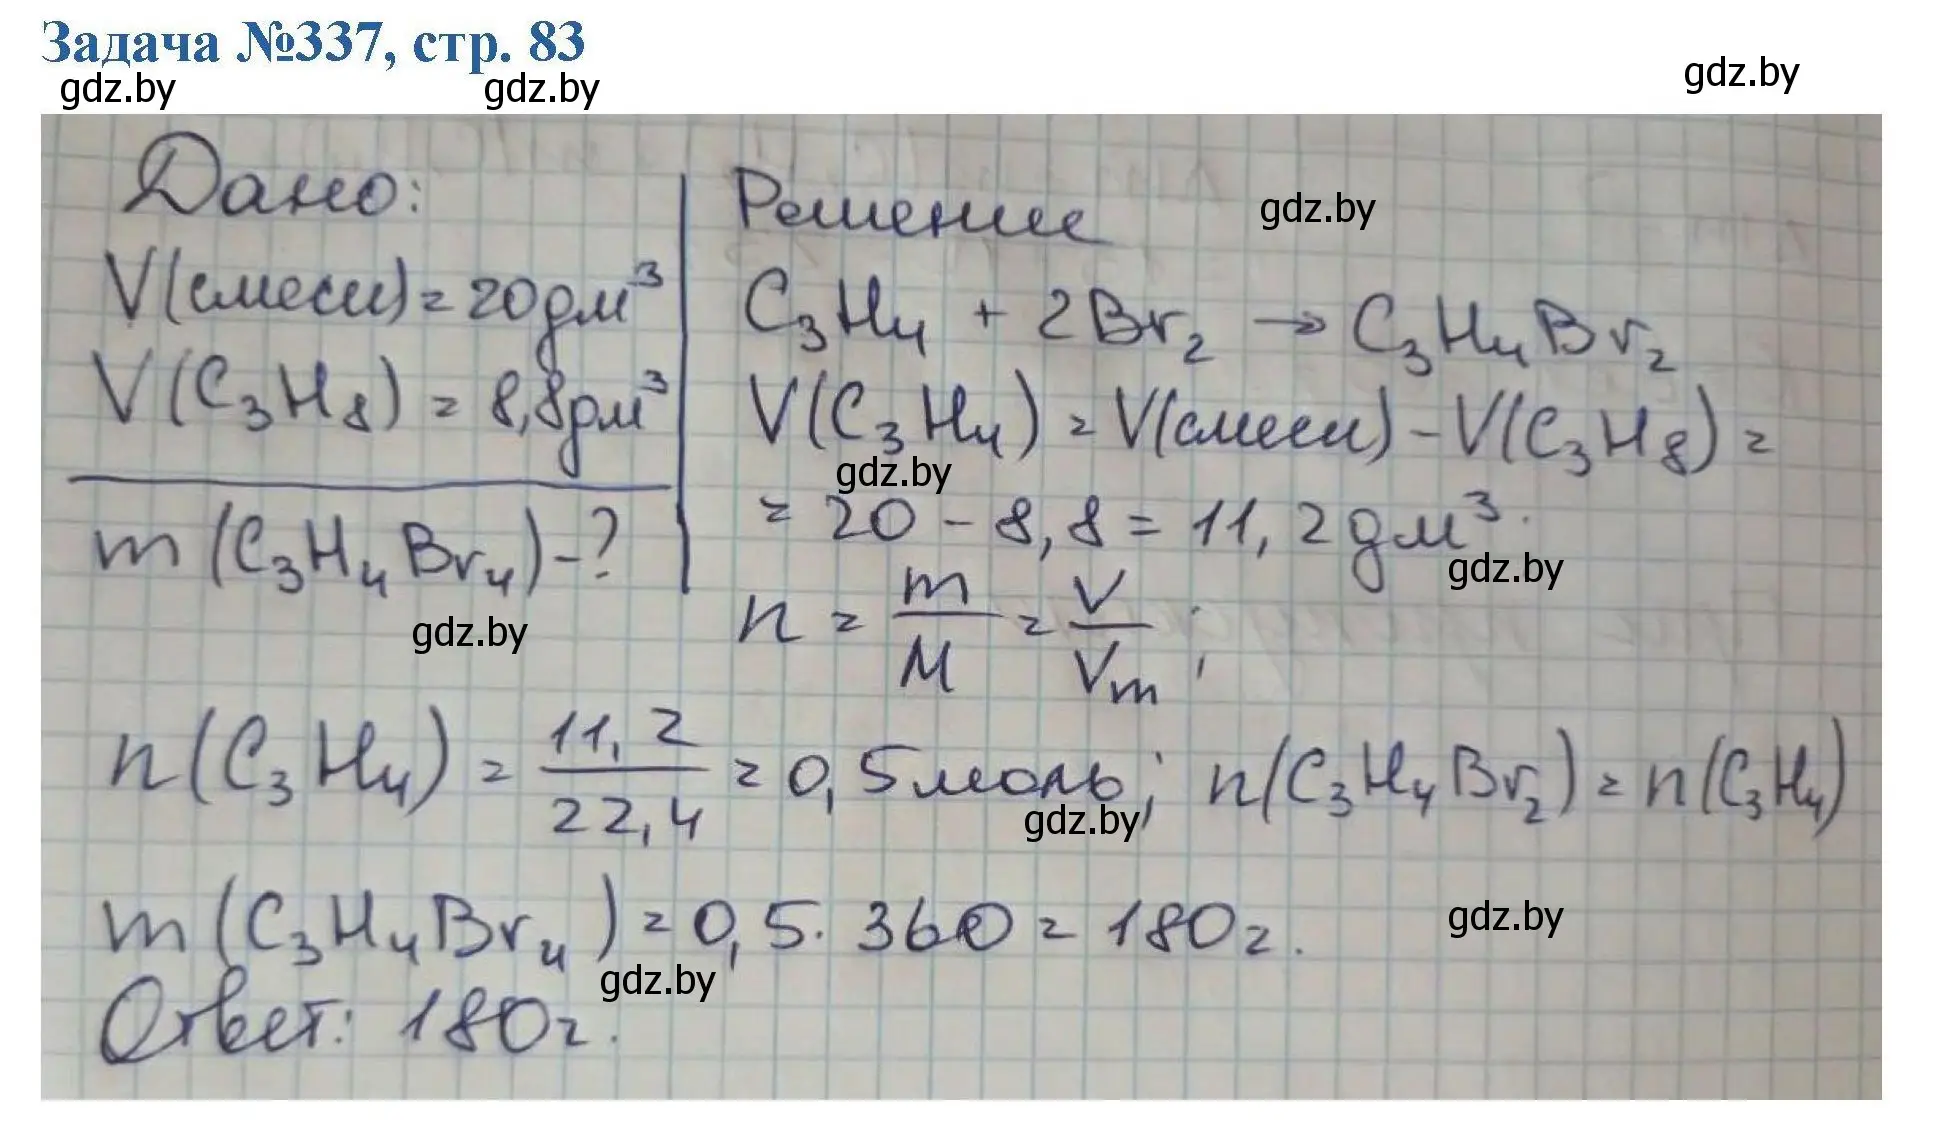 Задача №337, стр. 83
gdz.by gdz.by gdz.by
Дано:
V(смеси) = 20 дм³
V(C₃H₈) = 8,8 дм³
m(C₃H₄Br₄) - ?
gdz.by
Решение gdz.by
C₃H₄ + 2Br₂ → C₃H₄Br₂
V(C₃H₄) = V(смеси) - V(C₃H₈) =
gdz.by
= 20 - 8,8 = 11,2 дм³.
gdz.by
n = m/M = V/Vm;
n(C₃H₄) = 11,2/22,4 = 0,5 моль; n(C₃H₄Br₂) = n(C₃H₄)
gdz.by
m(C₃H₄Br₄) = 0,5 · 360 = 180 г. gdz.by
gdz.by
Ответ: 180 г.